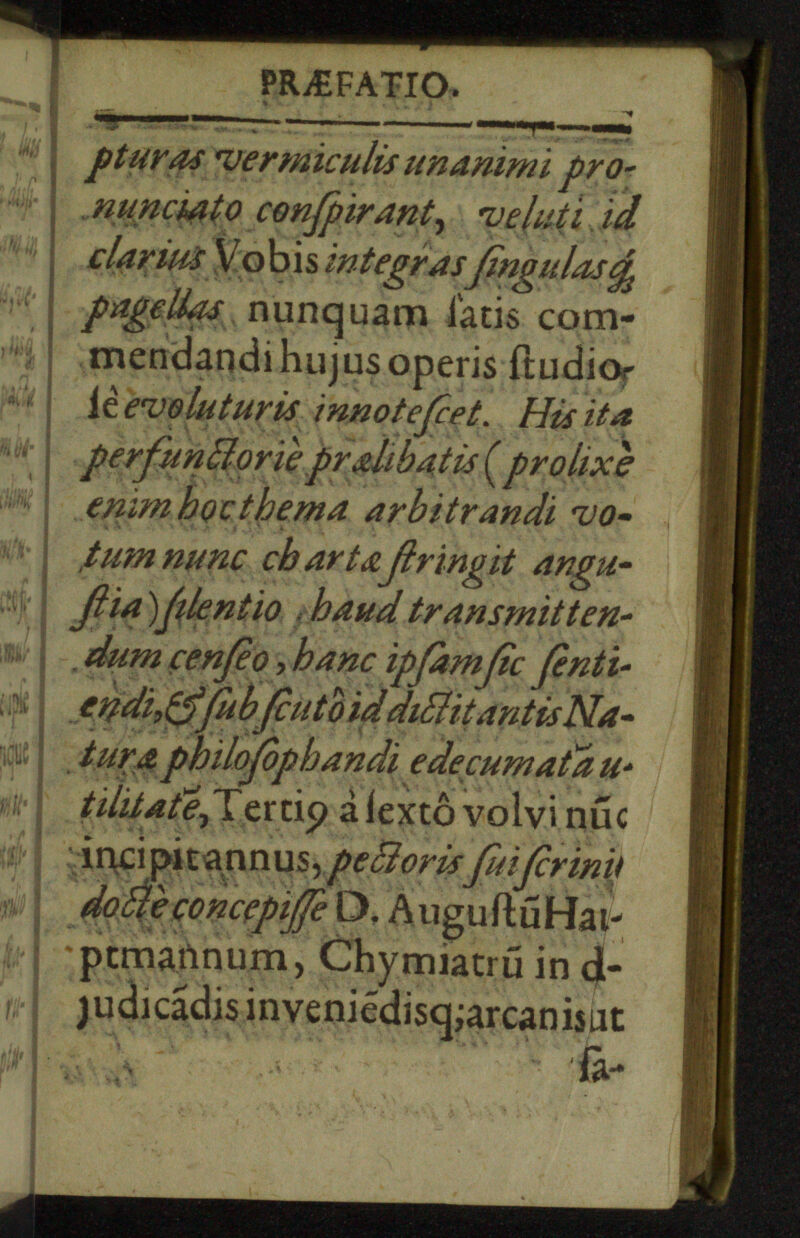 PRÆFATIO.
pturas vermiculis unanimi pro-
nunciato conſpirant, veluti id
clarius Vobis integras ſingulasq́;
pagellas nunquam ſatis com-
mendandi hujus operis ſtudio-
ſè evoluturis innoteſcet. His ita
perfunctoriè prælibatis (prolixè
enim hoc thema arbitrandi vo-
tum nunc chartæ ſtringit angu-
ſtia) ſilentio haud transmitten-
dum cenſeo, hanc ipſam ſic ſenti-
endi, & ſub ſcuto id dictitantis Na-
turæ philoſophandi edecumatā u-
tilitatē, Tertiꝰ à ſextô volvi nūc
incipit annus, pectoris ſui ſcrinii
doctè concepiſſe D. Auguſtū Hau-
ptmannum, Chymiatrū in d-
judicādis inveniēdisq; arcanis ut
fa-